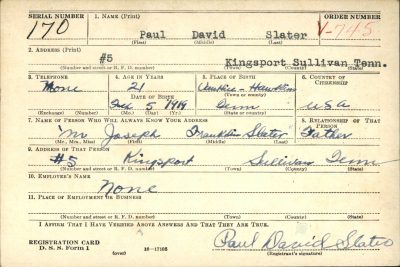 SERIAL NUMBER 1. NAME (Print) ORDER NUMBER
170 Paul David Slater V-745
(First) (Middle) (Last)
2. ADDRESS (Print)
#5 Kingsport Sullivan Tenn.
(Number and street or R. F. D. number) (Town) (County) (State)
3. TELEPHONE 4. AGE IN YEARS 5. PLACE OF BIRTH 6. COUNTRY OF CITIZENSHIP
None 21 Hawkins
DATE OF BIRTH (Town or county)
Feb 5 1919 Tenn USA
(Exchange) (Number) (Mo.) (Day) (Yr.) (State or country)
7. NAME OF PERSON WHO WILL ALWAYS KNOW YOUR ADDRESS 8. RELATIONSHIP OF THAT PERSON
Mr Joseph Franklin Slater Father
(Mr., Mrs., Miss) (First) (Middle) (Last)
9. ADDRESS OF THAT PERSON
#5 Kingsport Sullivan Tenn
(Number and street or R. F. D. number) (Town) (County) (State)
10. EMPLOYER'S NAME
None
11. PLACE OF EMPLOYMENT OR BUSINESS
(Number and street or R. F. D. number) (Town) (County) (State)
I AFFIRM THAT I HAVE VERIFIED ABOVE ANSWERS AND THAT THEY ARE TRUE.
REGISTRATION CARD
D. S. S. Form 1 (over) 16-17105 Paul David Slater
(Registrant's signature)